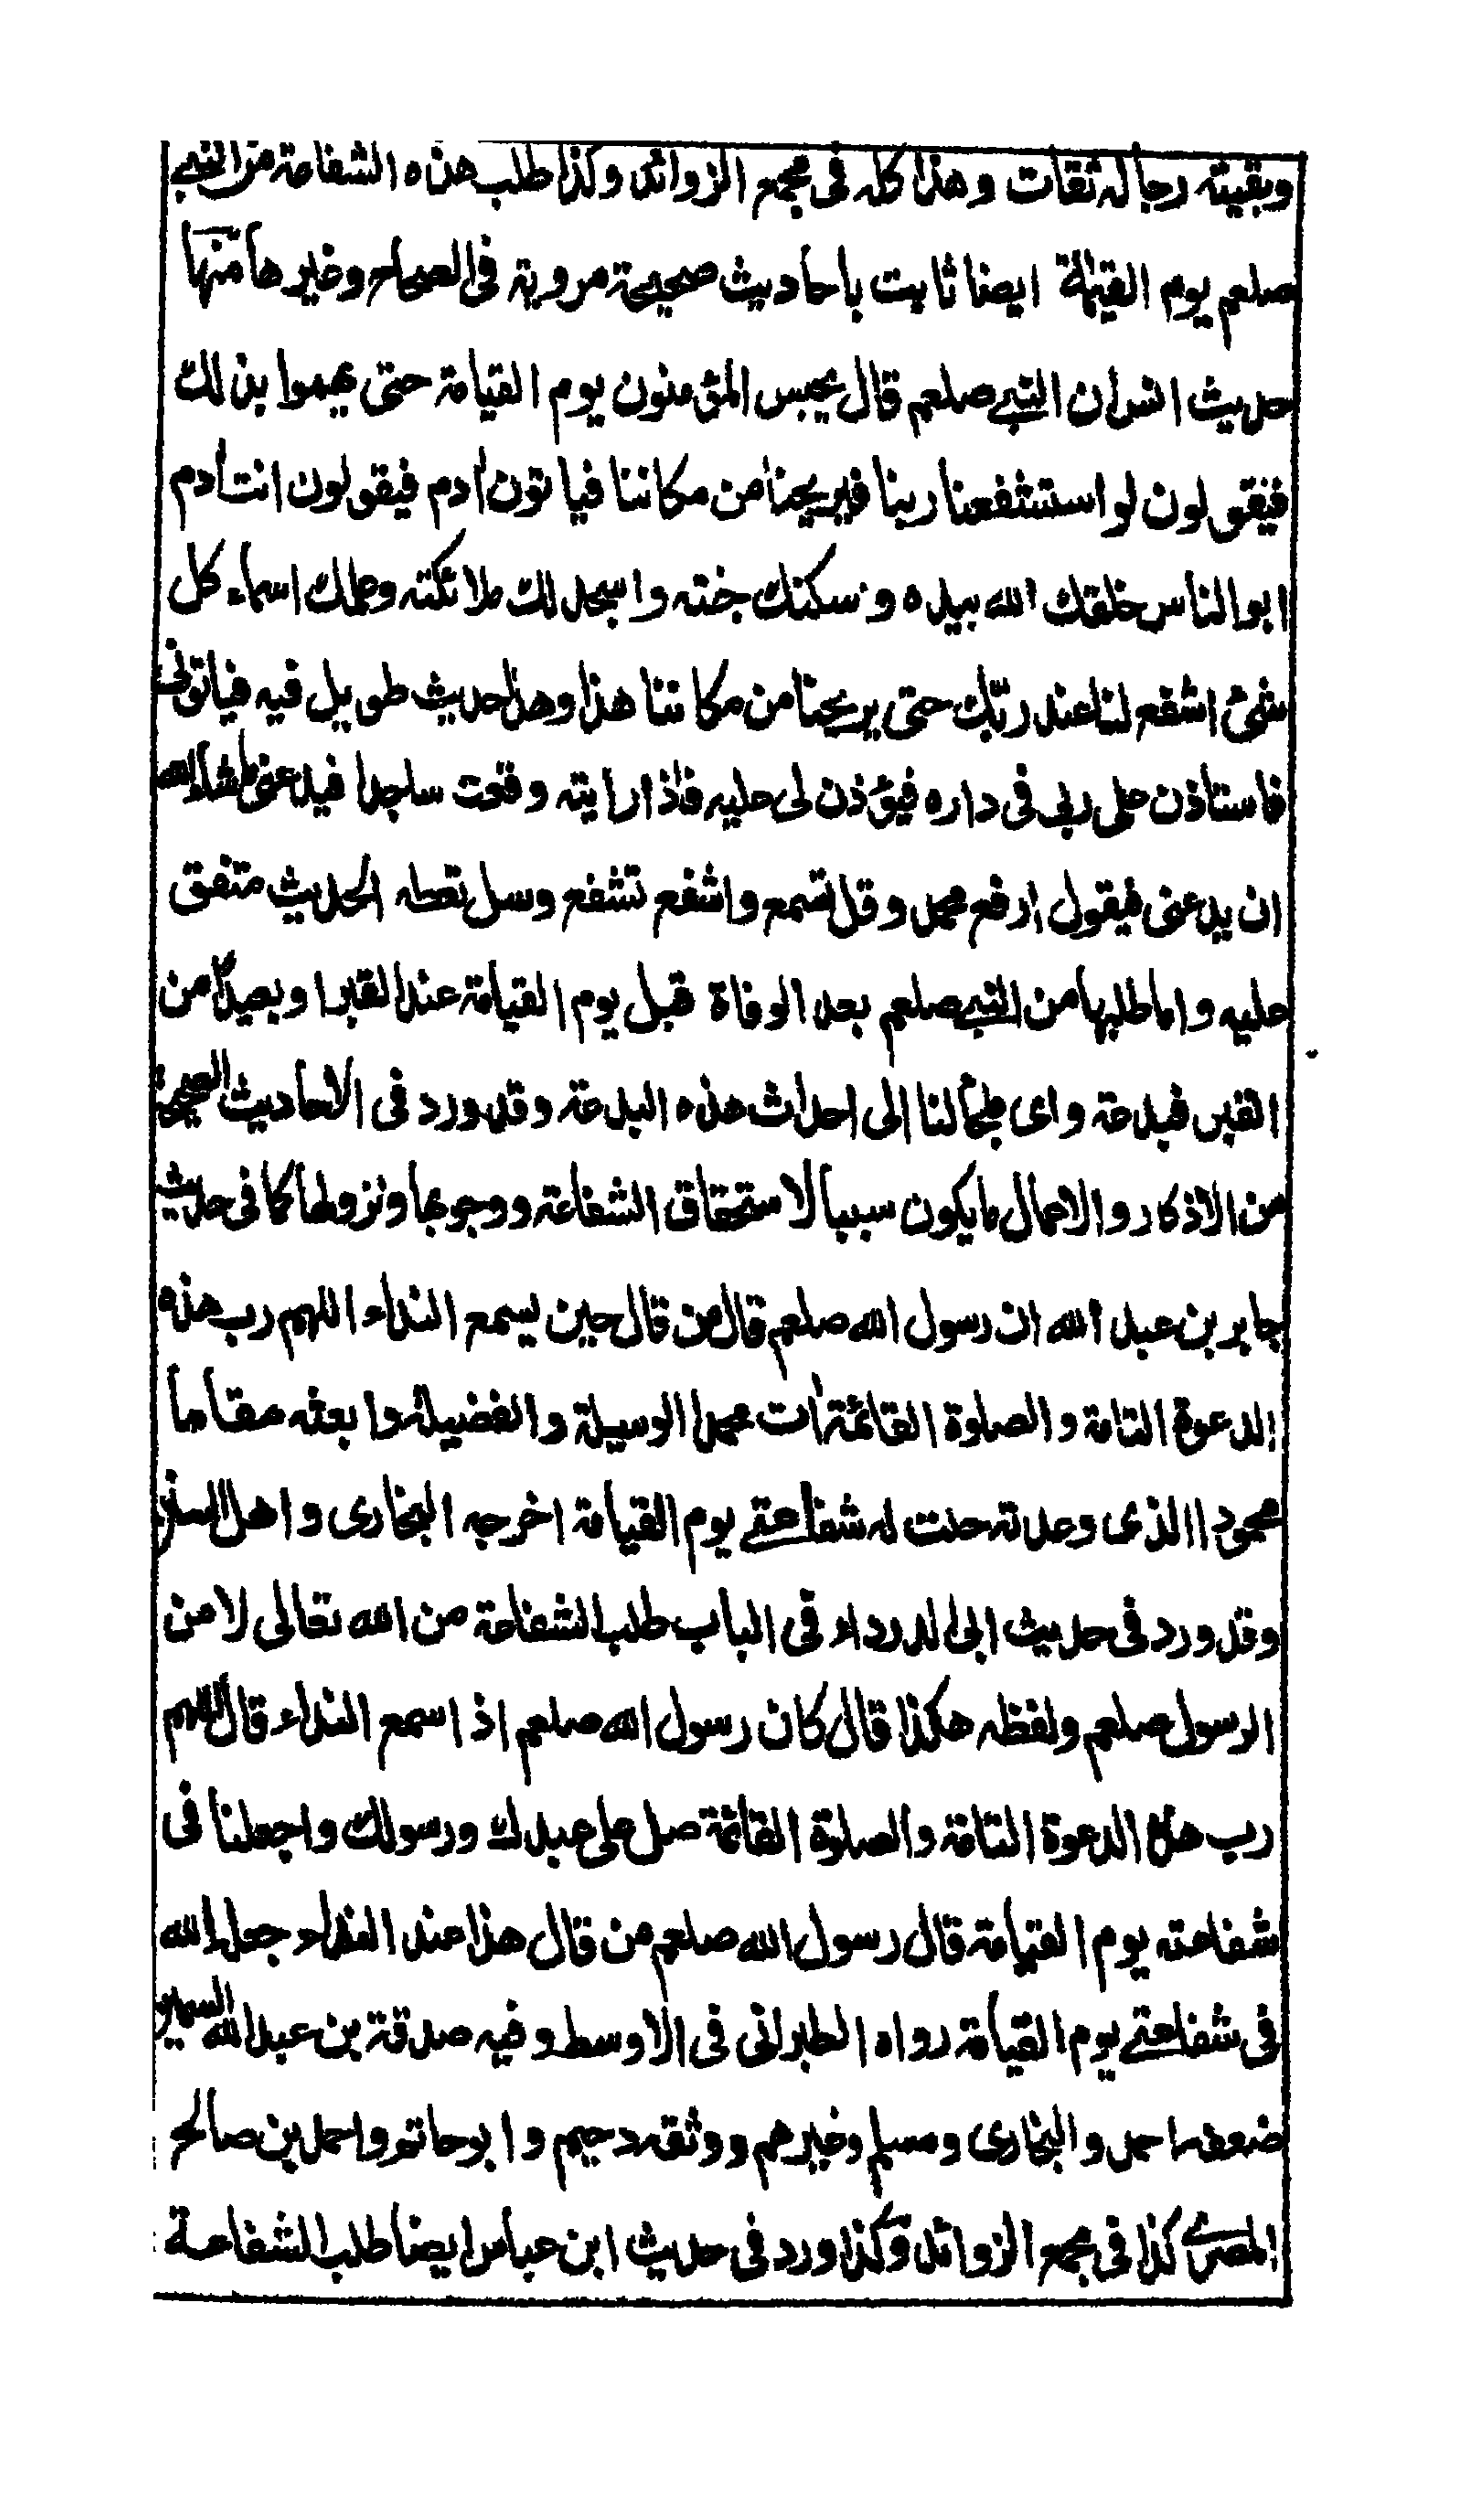 وبقيته رجاله ثقات وهذا كله في مجمع الزوائد وكذا طلب هذه الشفاعة من النبي
صلعم يوم القيمة ايضا ثابت باحاديث صحيحة مروية في الصحاح وغيرها منها
حديث انس ان النبي صلعم قال يحبس المؤمنون يوم القيامة حتى يهموا بذلك
فيقولون لو استشفعنا ربنا فيريحنا من مكاننا فياتون ادم فيقولون انت ادم
ابو الناس خلقك الله بيده وسكنك جنته واسجد لك ملائكته وعلمك اسماء كل
شئ اشفع لنا عند ربك حتى يريحنا من مكاننا هذا وهذا حديث طويل فيه فياتونى
فاستاذن على ربي في داره فيؤذن لى عليه فاذا رايته وقعت ساجدا فيدعنى ماشاء الله
ان يدعنى فيقول ارفع محمد وقل تسمع واشفع تشفع وسل تعطه الحديث متفق
عليه واما طلبها من النبي صلعم بعد الوفاة قبل يوم القيامة عند القبر او بعيدا من
القبر فبدعة واى ملجأ لنا الى احداث هذه البدعة وقد ورد فى الاحاديث الصحيحة
من الاذكار والاعمال ما يكون سببا لاستحقاق الشفاعة ووجوبها ونزولها كما فى حديث
جابر بن عبد الله ان رسول الله صلعم قال من قال حين يسمع النداء اللهم رب هذه
الدعوة التامة والصلوة القائمة ات محمدا الوسيلة والفضيلة وابعثه مقاما
محمودا الذى وعدته حلت له شفاعتي يوم القيامة اخرجه البخارى واهل السنن
وقد ورد فى حديث ابى الدرداء فى الباب طلب الشفاعة من الله تعالى لا من
الرسول صلعم ولفظه هكذا قال كان رسول الله صلعم اذا سمع النداء قال اللهم
رب هذه الدعوة التامة والصلوة القائمة صل على عبدك ورسولك واجعلنا فى
شفاعته يوم القيامة قال رسول الله صلعم من قال هذا عند النداء جعله الله
فى شفاعتي يوم القيامة رواه الطبرانى فى الاوسط وفيه صدقة بن عبد الله السمين
ضعفه احمد والبخارى ومسلم وغيرهم ووثقه دحيم وابو حاتم واحمد بن صالح
المصري كذا فى مجمع الزوائد وكذا ورد فى حديث ابن عباس ايضا طلب الشفاعة